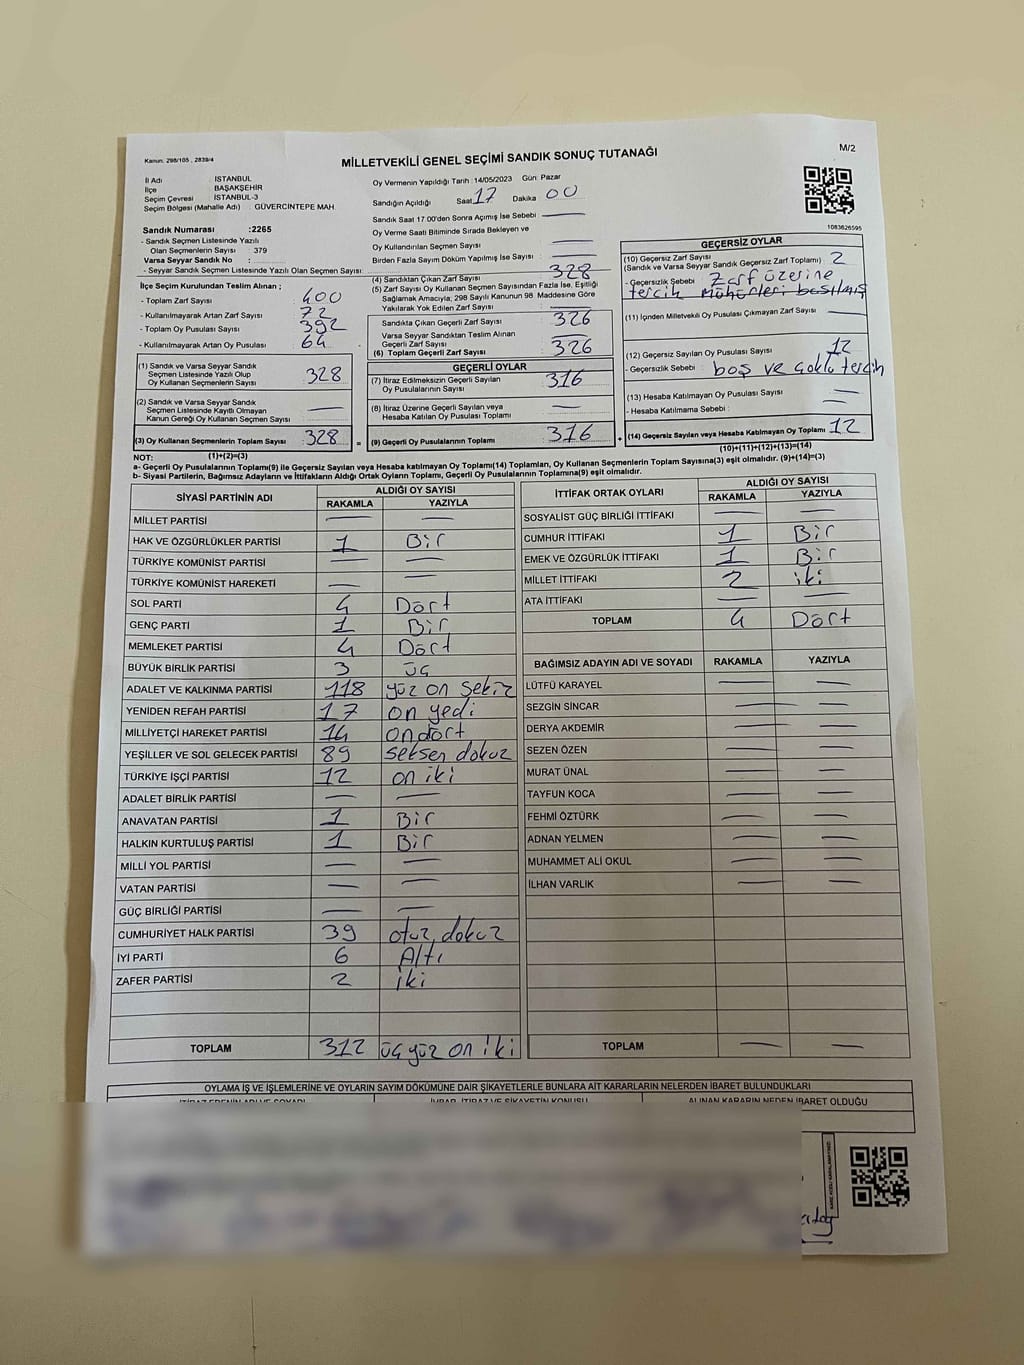 Kanun: 298/105 , 2839/4
MİLLETVEKİLİ GENEL SEÇİMİ SANDIK SONUÇ TUTANAĞI
M/2
İl Adı İSTANBUL
İlçe BAŞAKŞEHİR
Seçim Çevresi İSTANBUL-3
Seçim Bölgesi (Mahalle Adı) : GÜVERCİNTEPE MAH.
Sandık Numarası :2265
- Sandık Seçmen Listesinde Yazılı
Olan Seçmenlerin Sayısı : 379
Varsa Seyyar Sandık No :
- Seyyar Sandık Seçmen Listesinde Yazılı Olan Seçmen Sayısı:
Oy Vermenin Yapıldığı Tarih :14/05/2023 Gün: Pazar
Sandığın Açıldığı Saat 17 Dakika 00
Sandık Saat 17.00'den Sonra Açımış İse Sebebi —
Oy Verme Saati Bitiminde Sırada Bekleyen ve
Oy Kullandırılan Seçmen Sayısı —
Birden Fazla Sayım Döküm Yapılmış İse Sayısı: —
1083626595
İlçe Seçim Kurulundan Teslim Alınan ;
- Toplam Zarf Sayısı 400
- Kullanılmayarak Artan Zarf Sayısı : 72
- Toplam Oy Pusulası Sayısı : 392
- Kullanılmayarak Artan Oy Pusulası : 64
(1) Sandık ve Varsa Seyyar Sandık
Seçmen Listesinde Yazılı Olup
Oy Kullanan Seçmenlerin Sayısı : 328
(2) Sandık ve Varsa Seyyar Sandık
Seçmen Listesinde Kayıtlı Olmayan
Kanun Gereği Oy Kullanan Seçmen Sayısı —
(3) Oy Kullanan Seçmenlerin Toplam Sayısı : 328
(1)+(2)=(3)
(4) Sandıktan Çıkan Zarf Sayısı 328
(5) Zarf Sayısı Oy Kullanan Seçmen Sayısından Fazla İse, Eşitliği
Sağlamak Amacıyla; 298 Sayılı Kanunun 98. Maddesine Göre
Yakılarak Yok Edilen Zarf Sayısı —
Sandıkta Çıkan Geçerli Zarf Sayısı : 326
Varsa Seyyar Sandıktan Teslim Alınan
Geçerli Zarf Sayısı : —
(6) Toplam Geçerli Zarf Sayısı : 326
GEÇERLİ OYLAR
(7) İtiraz Edilmeksizin Geçerli Sayılan
Oy Pusulalarının Sayısı: 316
(8) İtiraz Üzerine Geçerli Sayılan veya
Hesaba Katılan Oy Pusulası Toplamı : —
= (9) Geçerli Oy Pusulalarının Toplamı : 316
GEÇERSİZ OYLAR
(10) Geçersiz Zarf Sayısı
(Sandık ve Varsa Seyyar Sandık Geçersiz Zarf Toplamı) : 2
- Geçersizlik Sebebi : Zarf üzerine
tercih mühürleri basılmış
(11) İçinden Milletvekili Oy Pusulası Çıkmayan Zarf Sayısı: —
(12) Geçersiz Sayılan Oy Pusulası Sayısı : 12
- Geçersizlik Sebebi boş ve çoklu tercih
(13) Hesaba Katılmayan Oy Pusulası Sayısı : —
- Hesaba Katılmama Sebebi : —
+ (14) Geçersiz Sayılan veya Hesaba Katılmayan Oy Toplamı : 12
(10)+(11)+(12)+(13)=(14)
NOT:
a- Geçerli Oy Pusulalarının Toplamı(9) ile Geçersiz Sayılan veya Hesaba katılmayan Oy Toplamı(14) Toplamları, Oy Kullanan Seçmenlerin Toplam Sayısına(3) eşit olmalıdır. (9)+(14)=(3)
b- Siyasi Partilerin, Bağımsız Adayların ve İttifakların Aldığı Ortak Oyların Toplamı, Geçerli Oy Pusulalarının Toplamına(9) eşit olmalıdır.
SİYASİ PARTİNİN ADI ALDIĞI OY SAYISI
RAKAMLA YAZIYLA
MİLLET PARTİSİ — —
HAK VE ÖZGÜRLÜKLER PARTİSİ 1 Bir
TÜRKİYE KOMÜNİST PARTİSİ — —
TÜRKİYE KOMÜNİST HAREKETİ — —
SOL PARTİ 4 Dört
GENÇ PARTİ 1 Bir
MEMLEKET PARTİSİ 4 Dört
BÜYÜK BİRLİK PARTİSİ 3 üç
ADALET VE KALKINMA PARTİSİ 118 yüz on sekiz
YENİDEN REFAH PARTİSİ 17 on yedi
MİLLİYETÇİ HAREKET PARTİSİ 14 ondört
YEŞİLLER VE SOL GELECEK PARTİSİ 89 seksen dokuz
TÜRKİYE İŞÇİ PARTİSİ 12 on iki
ADALET BİRLİK PARTİSİ — —
ANAVATAN PARTİSİ 1 Bir
HALKIN KURTULUŞ PARTİSİ 1 Bir
MİLLİ YOL PARTİSİ — —
VATAN PARTİSİ — —
GÜÇ BİRLİĞİ PARTİSİ — —
CUMHURİYET HALK PARTİSİ 39 otuz dokuz
İYİ PARTİ 6 Altı
ZAFER PARTİSİ 2 iki
TOPLAM 312 üç yüz on iki
İTTİFAK ORTAK OYLARI ALDIĞI OY SAYISI
RAKAMLA YAZIYLA
SOSYALİST GÜÇ BİRLİĞİ İTTİFAKI — —
CUMHUR İTTİFAKI 1 Bir
EMEK VE ÖZGÜRLÜK İTTİFAKI 1 Bir
MİLLET İTTİFAKI 2 iki
ATA İTTİFAKI — —
TOPLAM 4 Dört
BAĞIMSIZ ADAYIN ADI VE SOYADI RAKAMLA YAZIYLA
LÜTFÜ KARAYEL — —
SEZGİN SİNCAR — —
DERYA AKDEMİR — —
SEZEN ÖZEN — —
MURAT ÜNAL — —
TAYFUN KOCA — —
FEHMİ ÖZTÜRK — —
ADNAN YELMEN — —
MUHAMMET ALİ OKUL — —
İLHAN VARLIK — —
TOPLAM — —
OYLAMA İŞ VE İŞLEMLERİNE VE OYLARIN SAYIM DÖKÜMÜNE DAİR ŞİKAYETLERLE BUNLARA AİT KARARLARIN NELERDEN İBARET BULUNDUKLARI
İTİRAZ EDENİN ADI VE SOYADI İHBAR, İTİRAZ VE ŞİKAYETİN KONUSU ALINAN KARARIN NEDEN İBARET OLDUĞU